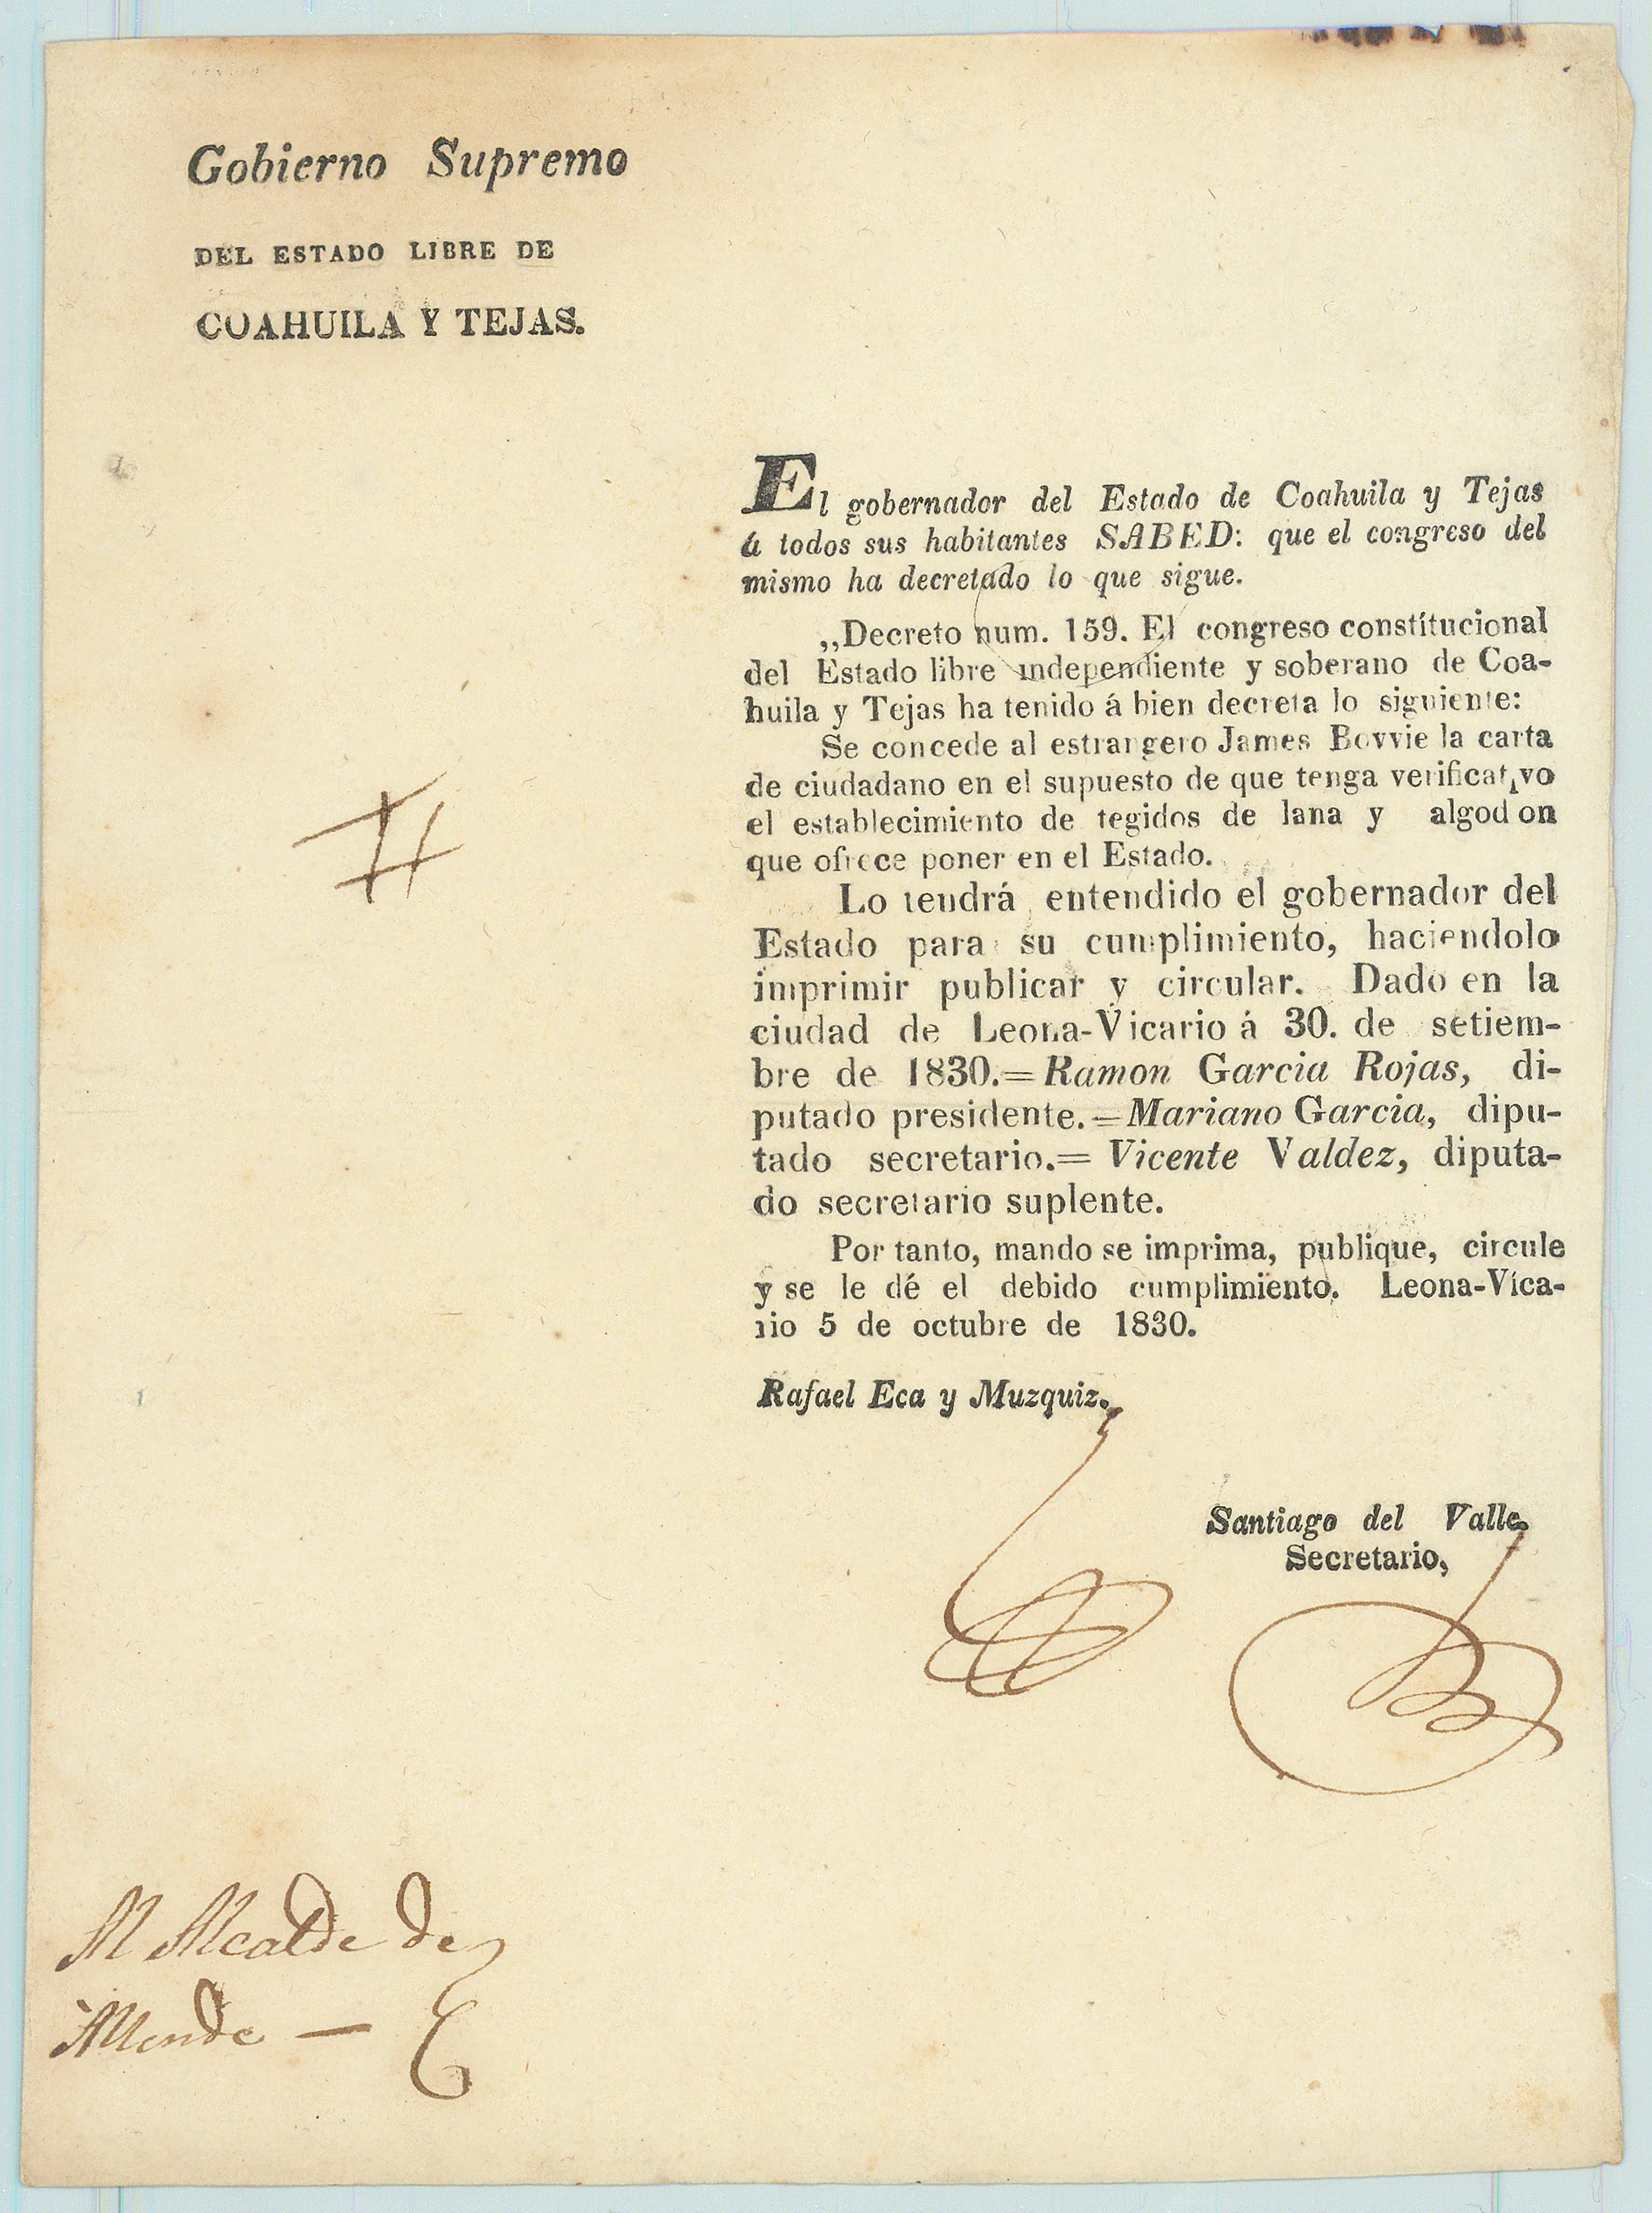 Gobierno Supremo
DEL ESTADO LIBRE DE
COAHUILA Y TEJAS.
El gobernador del Estado de Coahuila y Tejas
á todos sus habitantes SABED: que el congreso del
mismo ha decretado lo que sigue.
,,Decreto num. 159. El congreso constitucional
del Estado libre independiente y soberano de Coa-
huila y Tejas ha tenido á bien decreta lo siguiente:
Se concede al estrangero James Bovvie la carta
de ciudadano en el supuesto de que tenga verificativo
el establecimiento de tegidos de lana y algodon
que ofrece poner en el Estado.
Lo tendrá entendido el gobernador del
Estado para su cumplimiento, haciendolo
imprimir publicar y circular. Dado en la
ciudad de Leona-Vicario á 30. de setiem-
bre de 1830.=Ramon Garcia Rojas, di-
putado presidente.=Mariano Garcia, dipu-
tado secretario.= Vicente Valdez, diputa-
do secretario suplente.
Por tanto, mando se imprima, publique, circule
y se le dé el debido cumplimiento. Leona-Víca-
rio 5 de octubre de 1830.
Rafael Eca y Muzquiz.
Santiago del Valle.
Secretario,
Al Alcalde de
Allende —